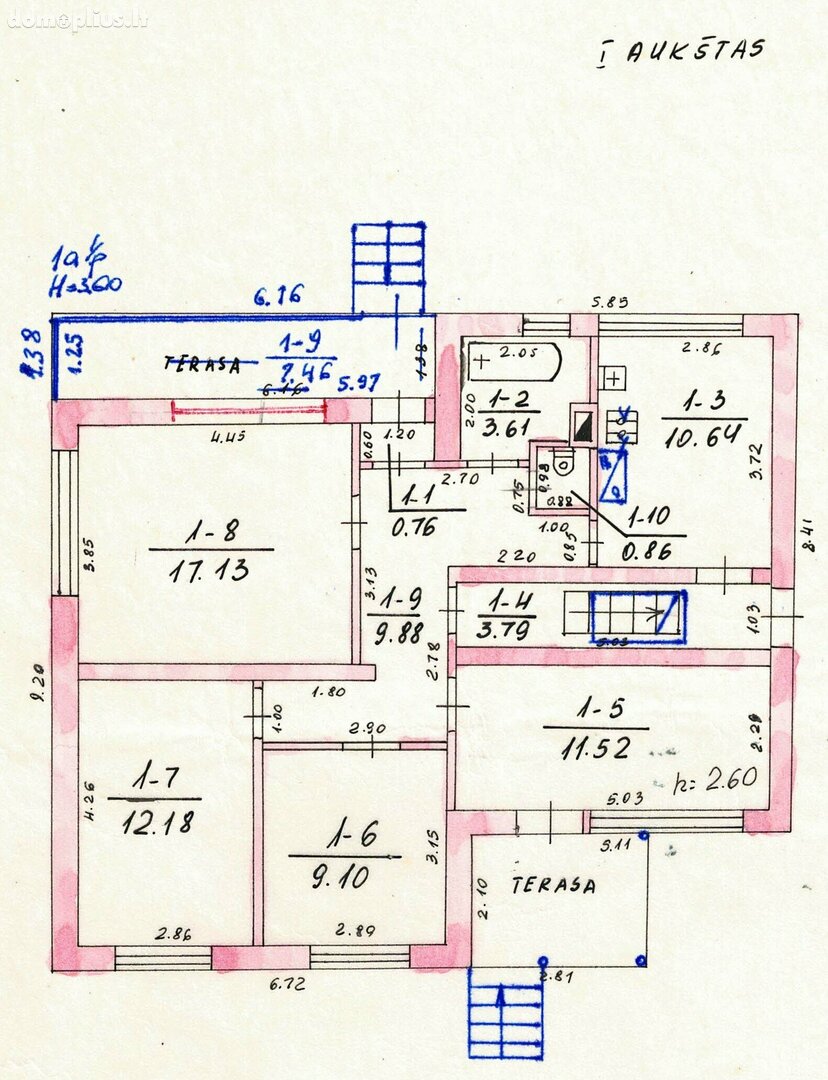 domoplius.lt
I AUKŠTAS
1a 1/p
H=3.60
6.16
5.83
1.38
1.25
TERASA
1-9
7.46
5.97
1.38
6.16
2.05
1-2
3.61
2.00
2.86
1-3
10.64
3.72
4.45
0.60
1.20
2.70
1-1
0.76
0.75
0.98
0.88
1.00
1-10
0.86
0.85
8.41
1-8
17.13
3.85
2.20
3.13
1-9
9.88
1-4
3.79
5.03
1.03
2.78
9.20
1.80
1.00
2.90
1-5
11.52
2.29
h=2.60
5.03
1-7
12.18
4.26
1-6
9.10
3.15
3.11
TERASA
2.10
2.86
2.89
6.72
2.81